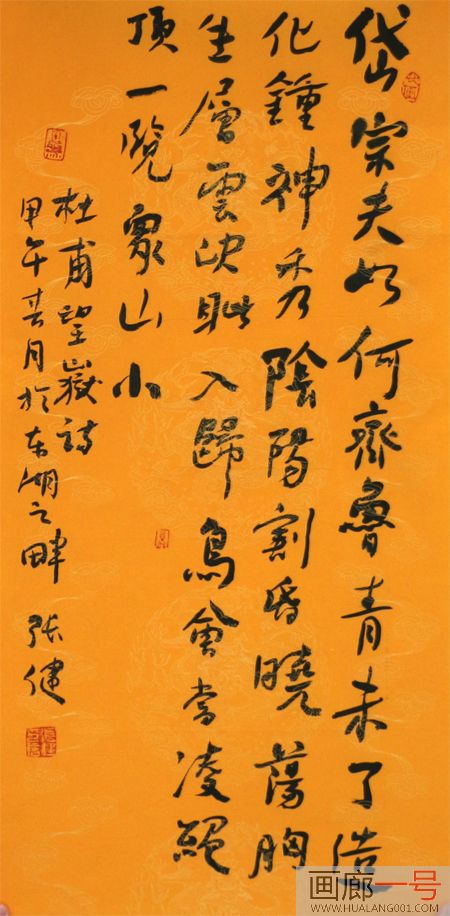 岱宗夫如何齊魯青未了造
化鐘神秀陰陽割昏曉蕩胸
生層雲決眦入歸鳥會當凌絕
頂一覽眾山小
杜甫望嶽詩
甲午春月於东湖之畔 张健
画廊一号
WWW.HUALANG001.COM